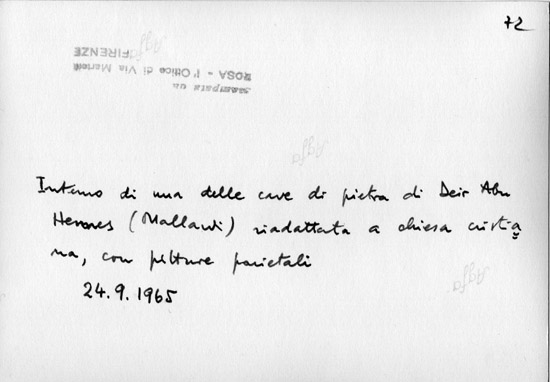 72
stampata da
ROSA - l'Ottico di Via Martelli
FIRENZE
Agfa
Agfa
Interno di una delle cave di pietra di Deir Abu
Hennes (Mallawi) riadattata a chiesa cristia
na, con pitture parietali
Agfa
24.9.1965